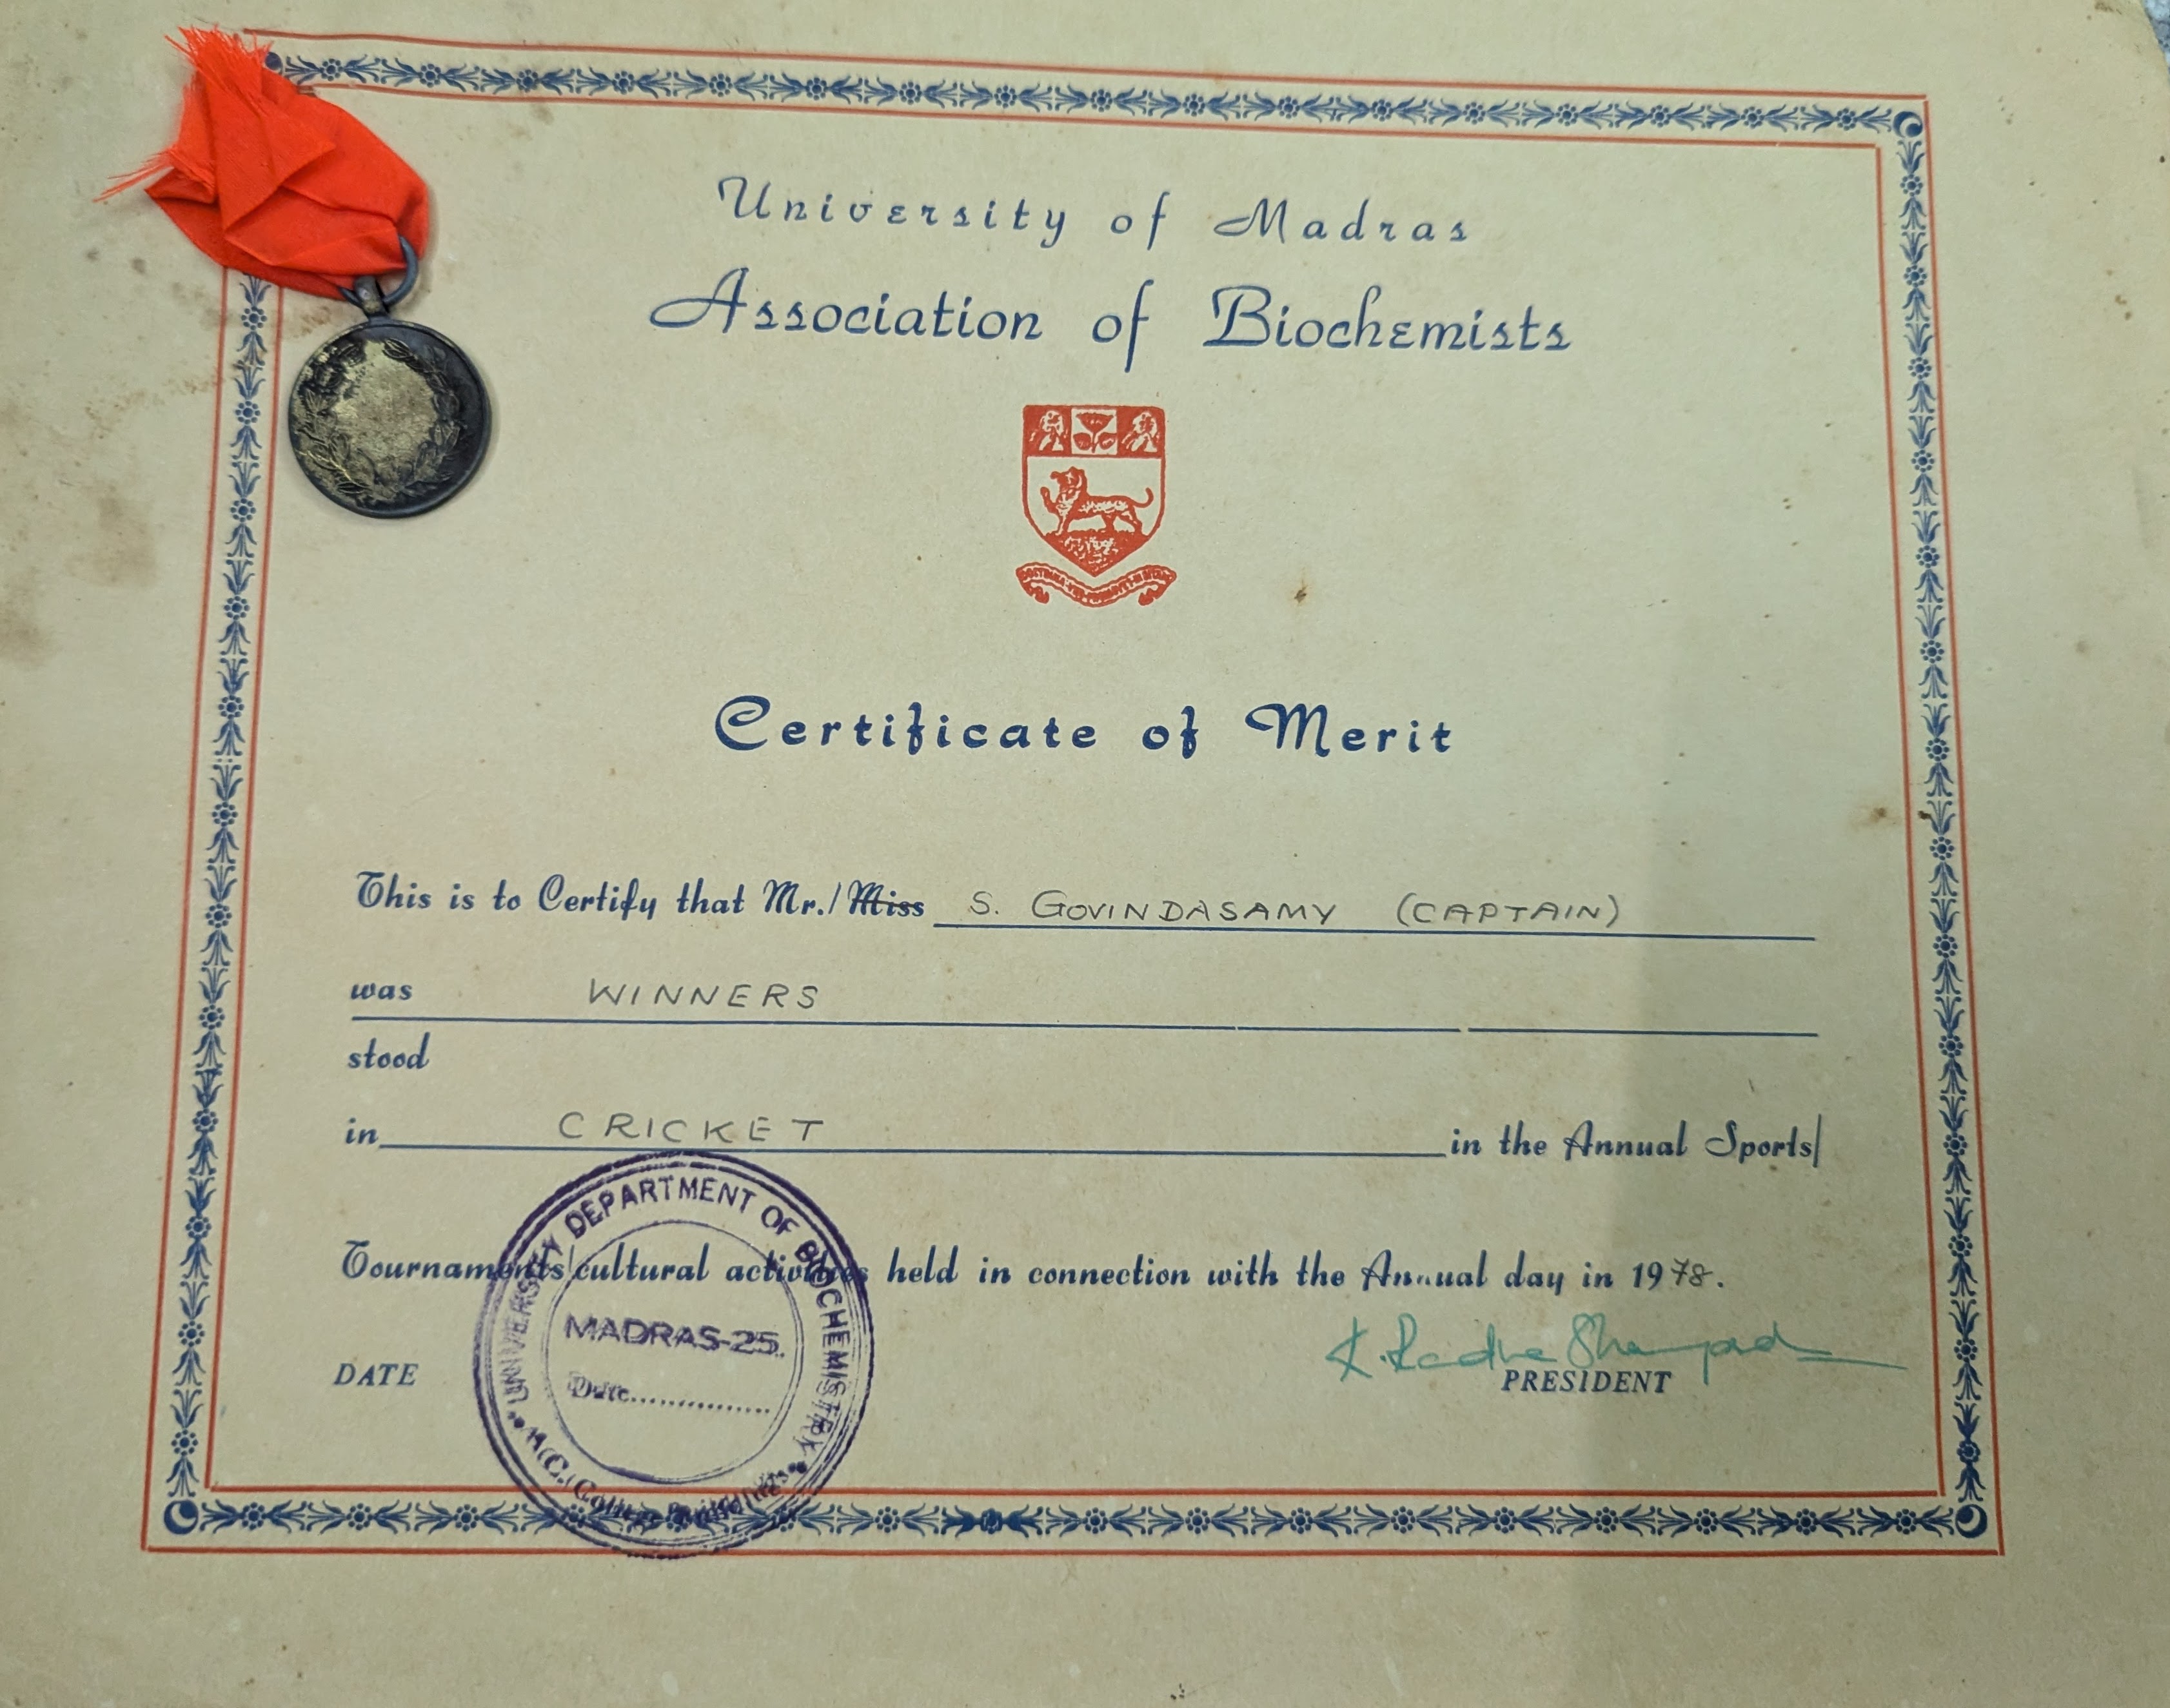 University of Madras
Association of Biochemists
Certificate of Merit
This is to Certify that Mr./Miss S. GOVINDASAMY (CAPTAIN)
was WINNERS
stood
in CRICKET in the Annual Sports/
Tournaments/cultural activities held in connection with the Annual day in 1978.
DATE
K. Radha
PRESIDENT
UNIVERSITY DEPARTMENT OF BIOCHEMISTRY
MADRAS-25.
Date...............
A.C. College Buildings